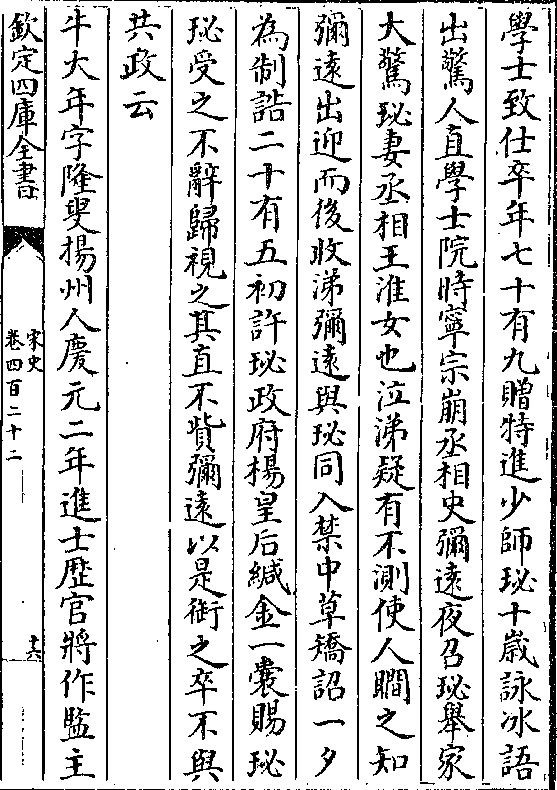 學士致仕卒年七十有九贈特進少師珌十歲詠冰語
出驚人直學士院時寧宗崩丞相史彌遠夜召珌舉家
大驚珌妻丞相王淮女也泣涕疑有不測使人瞯之知
彌遠出迎而後收涕彌遠與珌同入禁中草矯詔一夕
為制誥二十有五初許珌政府楊皇后緘金一囊賜珌
珌受之不辭歸視之其直不貲彌遠以是銜之卒不與
共政云
牛大年字隆叟揚州人慶元二年進士歴官將作監主
欽定四庫全書
宋史
卷四百二十二
十六